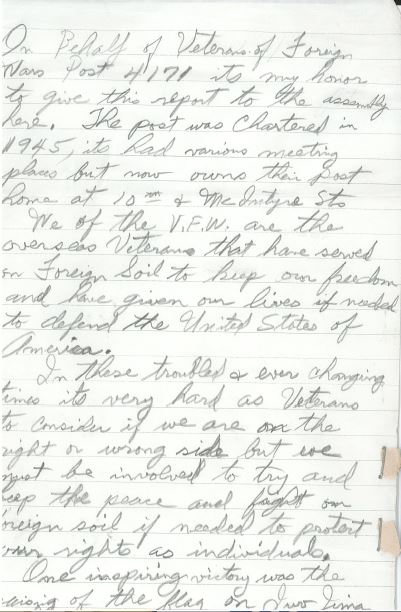 On Behalf of Veterans of Foreign
Wars Post 4171 its my honor
to give this report to the assembly
here. The post was Chartered in
1945, its had various meeting
places but now owns their post
home at 10th & McIntyre Sts
We of the V.F.W. are the
overseas Veterans that have served
on Foreign Soil to keep our freedom
and have given our lives if needed
to defend the United States of
America.
In these troubled & ever changing
times its very hard as Veterans
to consider if we are on the
right or wrong side but we
must be involved to try and
keep the peace and fight on
foreign soil if needed to protect
our rights as individuals.
One inspiring victory was the
raising of the flag on Iwo Jima